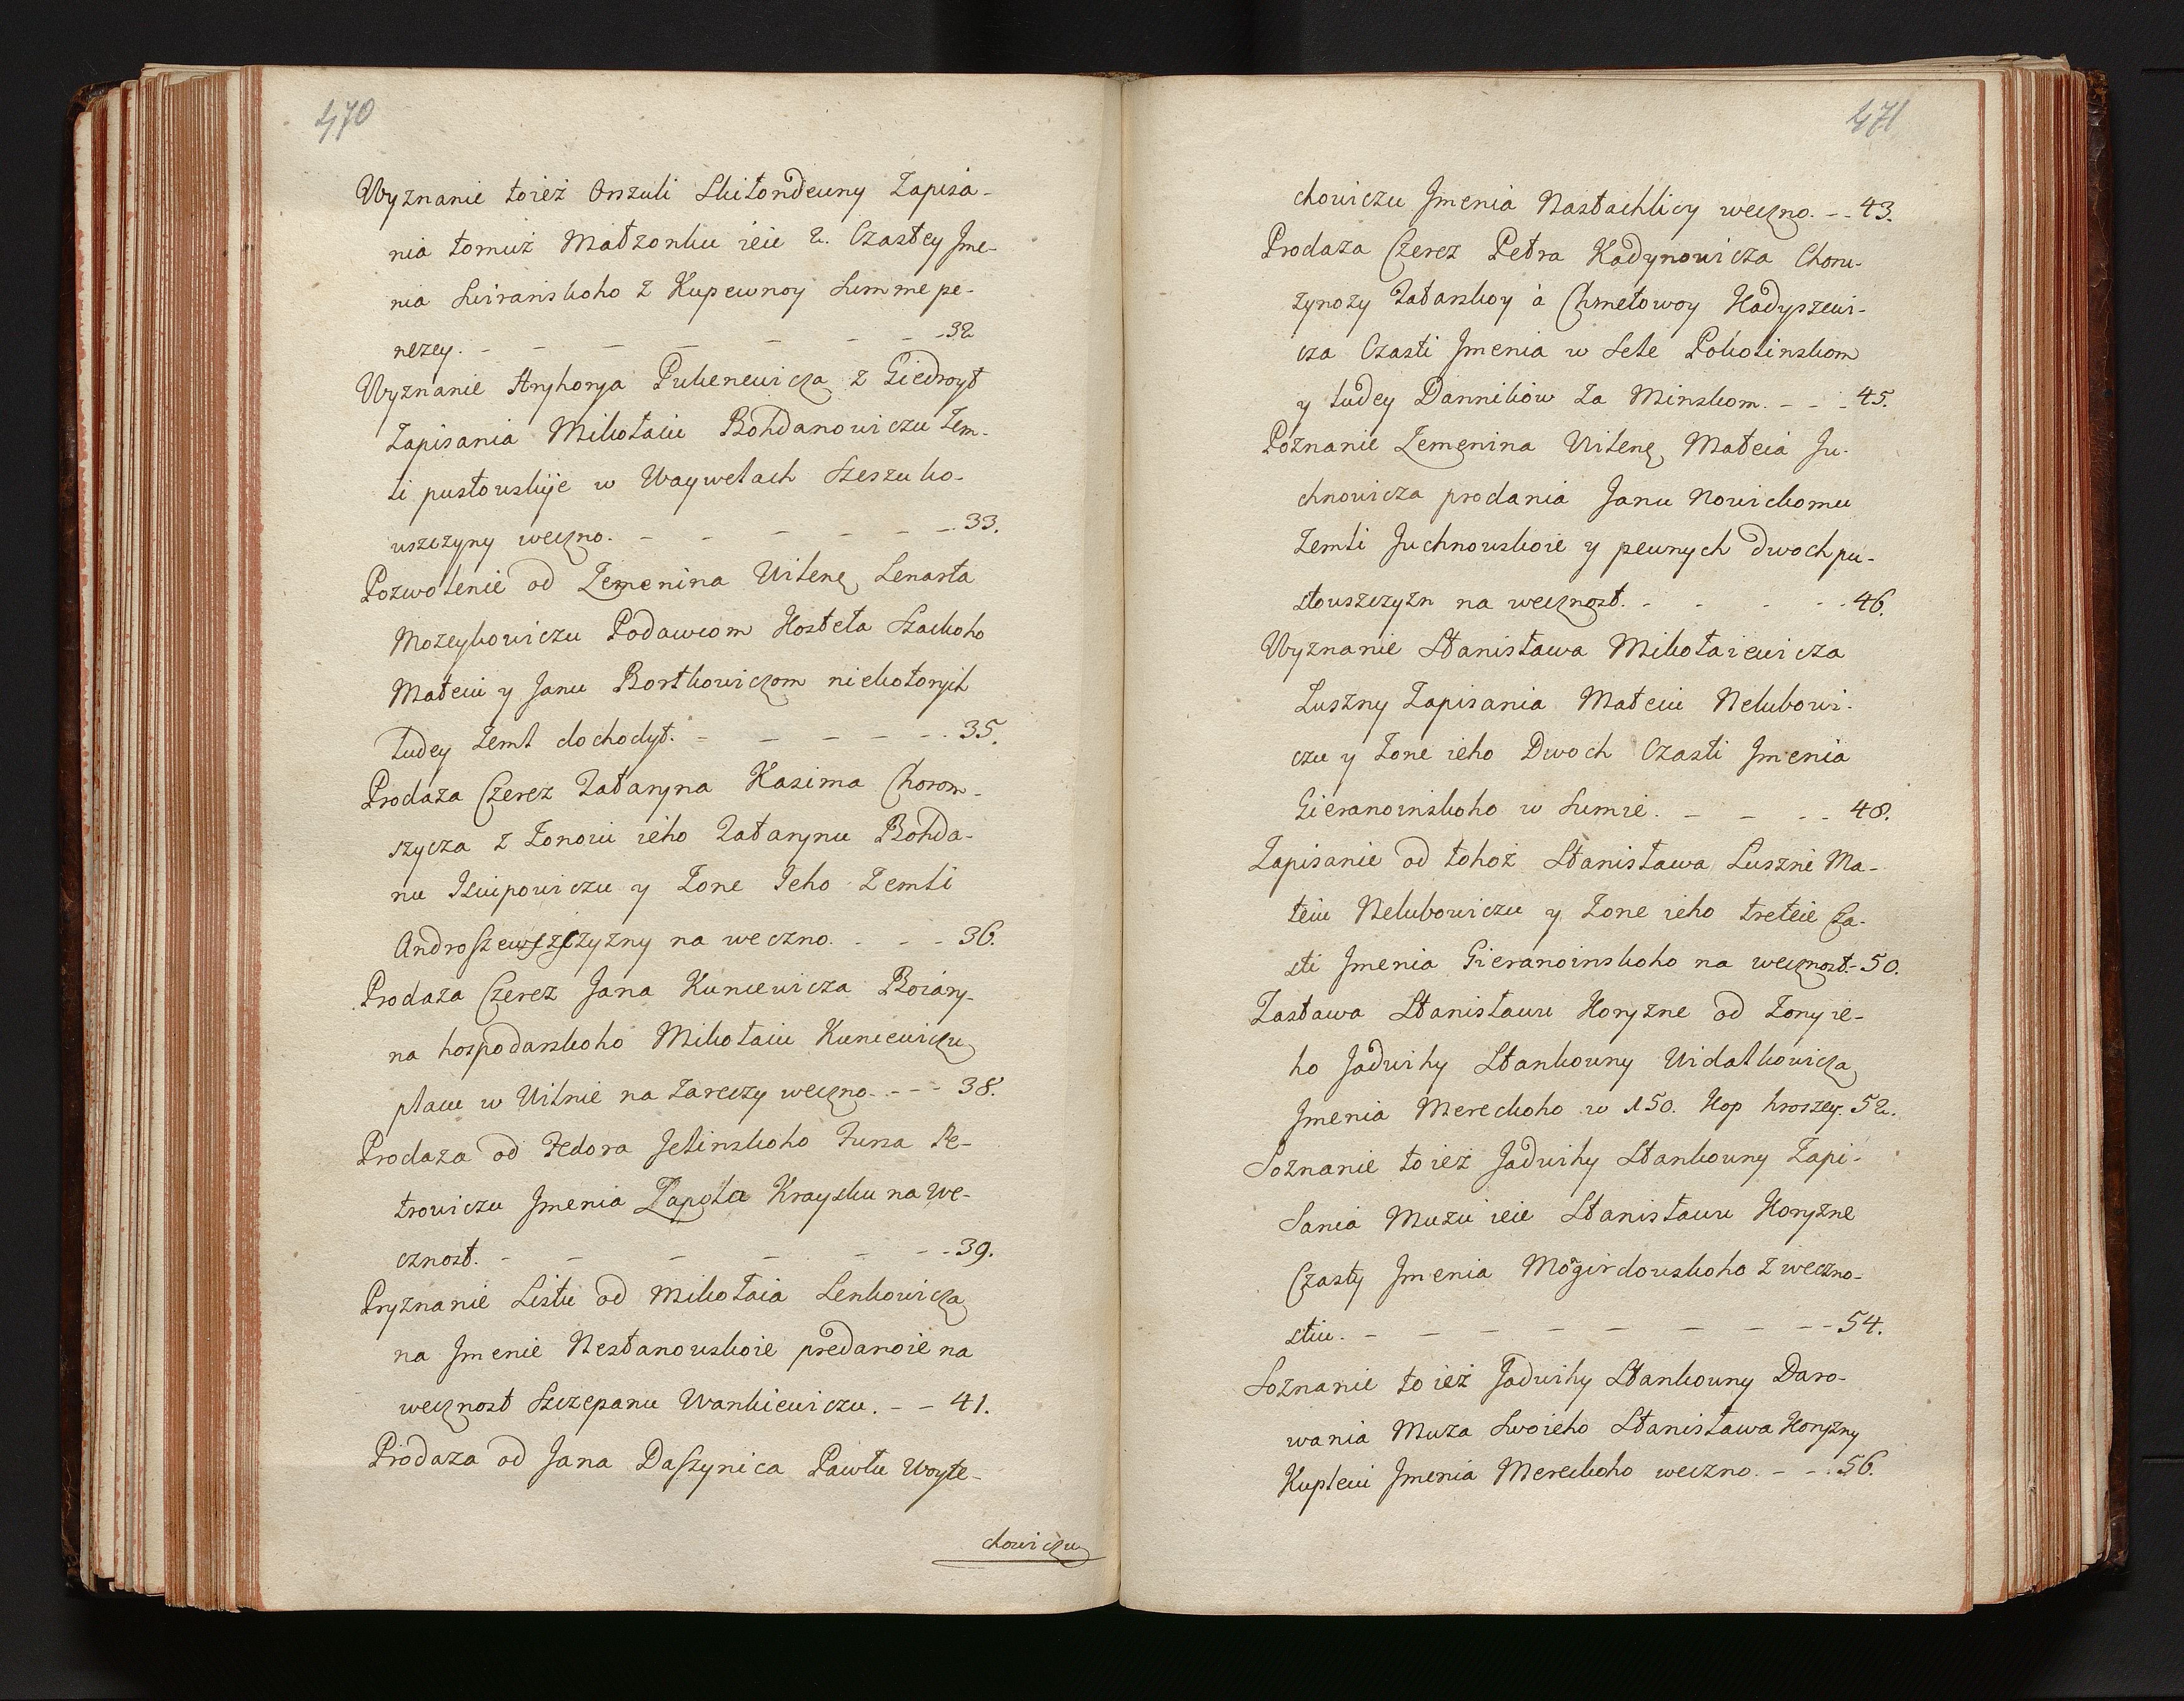 470
Wyznanie toież Orszuli Skitondeuny Zapisa-
nia tomuż Małżonku ieie 2. Czastey Jme-
nia Swiranskoho z Kupewnoy Summe pe-
nezey. - - - - - - - 32
Wyznanie Hryhorya Pukenewicza z Giedroyt
Zapisania Mikołaiu Bohdanowiczu Zem-
li pustowskije w Waywelach Szeszuko-
wszczyny weczno. - - - - - 33.
Pozwolenie od Zemenina Uilene Lenarta
Mozeykowiczu Podawcom Kosteła Szackoho
Mateiu y Janu Bortkowiczom niekotorych
ludey Zeml dochodyt. - - - - - 35.
Prodaza Czerez Tataryna Kasima Chorom-
szycza z Zonoiu ieho Tatarynu Bohda-
nu Jsuipowiczu y Zone Jeho Zemli
Androszewszczyzny na weczno. - - - 36.
Prodaza Czerez Jana Kuncewicza Boiary-
na hospodarskoho Mikołaiu Kuncewiczu
placu w Uilnie na Zareczy weczno. - - - 38.
Prodaza od Fedora Jelinskoho Jursa Pe-
trowiczu Jmenia Zapola Kraysku na we-
cznost. - - - - - - 39.
Pryznanie Listu od Mikołaia Lenkowicza
na Jmenie Nestanowskoie predanoie na
wecznost Szczepanu Wankiewiczu. - - 41.
Prodaza od Jana Daszynica Pawłu Woyte-
chowiczu
471
chowiczu Jmenia Nastachlicy weczno. - - 43.
Prodaza Czerez Petra Kadynowicza Choru-
zynozy Tatarskoy à Chmetowoy Hadyszewi-
cza Czasti Jmenia w Sele Pokolinskom
y ludey Dannikow za Minskom. - - - 45.
Poznanie Zemenina Uilene Mateia Ju-
chnowicza prodania Janu Nowickomu
Zemli Juchnowskoie y pewnych dwoch pu-
stowszczyzn na wecznost. - - - - 46.
Wyznanie Stanisława Mikołaiewicza
Luszny Zapisania Mateiu Nelubowi-
czu y Zone ieho Dwoch Czasti Jmenia
Gieranoinskoho w Sumie. - - - - 48.
Zapisanie od tohoż Stanisława Luszni Ma-
teiu Nelubowiczu y Zone ieho treteie Cza-
sti Jmenia Gieranoinskoho na wecznost.- 50.
Zastawa Stanisławu Horyzne od Zony ie-
ho Jadwihy Stankowny Uidatkowicza
Jmenia Mereckoho w 150. Kop hroszey. 52.
Soznanie toież Jadwihy Stankowny Zapi-
sania Muzu ieie Stanisławu Horyzne
Czasty Jmenia Mogirdowskoho z weczno-
stiu. - - - - - - - - 54.
Soznanie toież Jadwihy Stankowny Daro-
wania Muza Swoieho Stanisława Horyzny
Kupleiu Jmenia Mereckoho weczno. - - - 56.